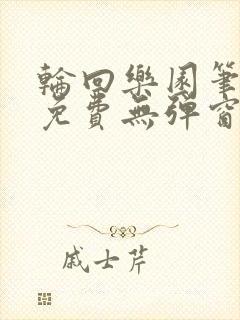 輪回樂園筆
免費無彈窗
戚士芹